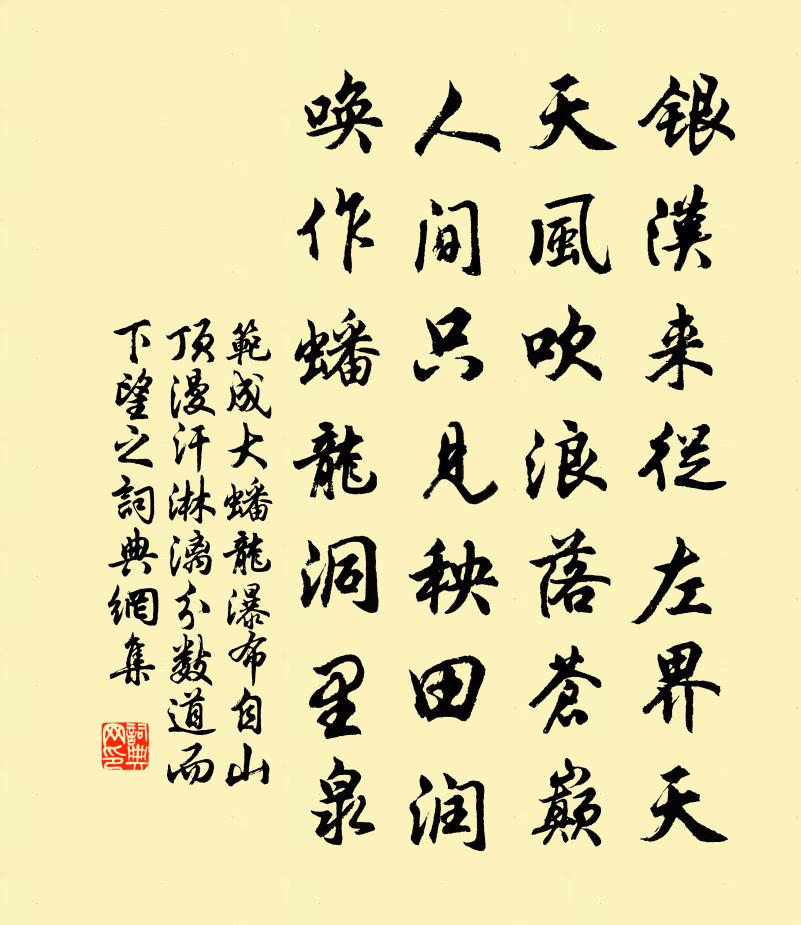 銀漢来從左界天
天風吹浪落蒼巔
人间只見秧田润
唤作蟠龍洞里泉
範成大蟠龍瀑布自山
頂漫汗淋漓分數道而
下望之詞典網集
詞典
网印